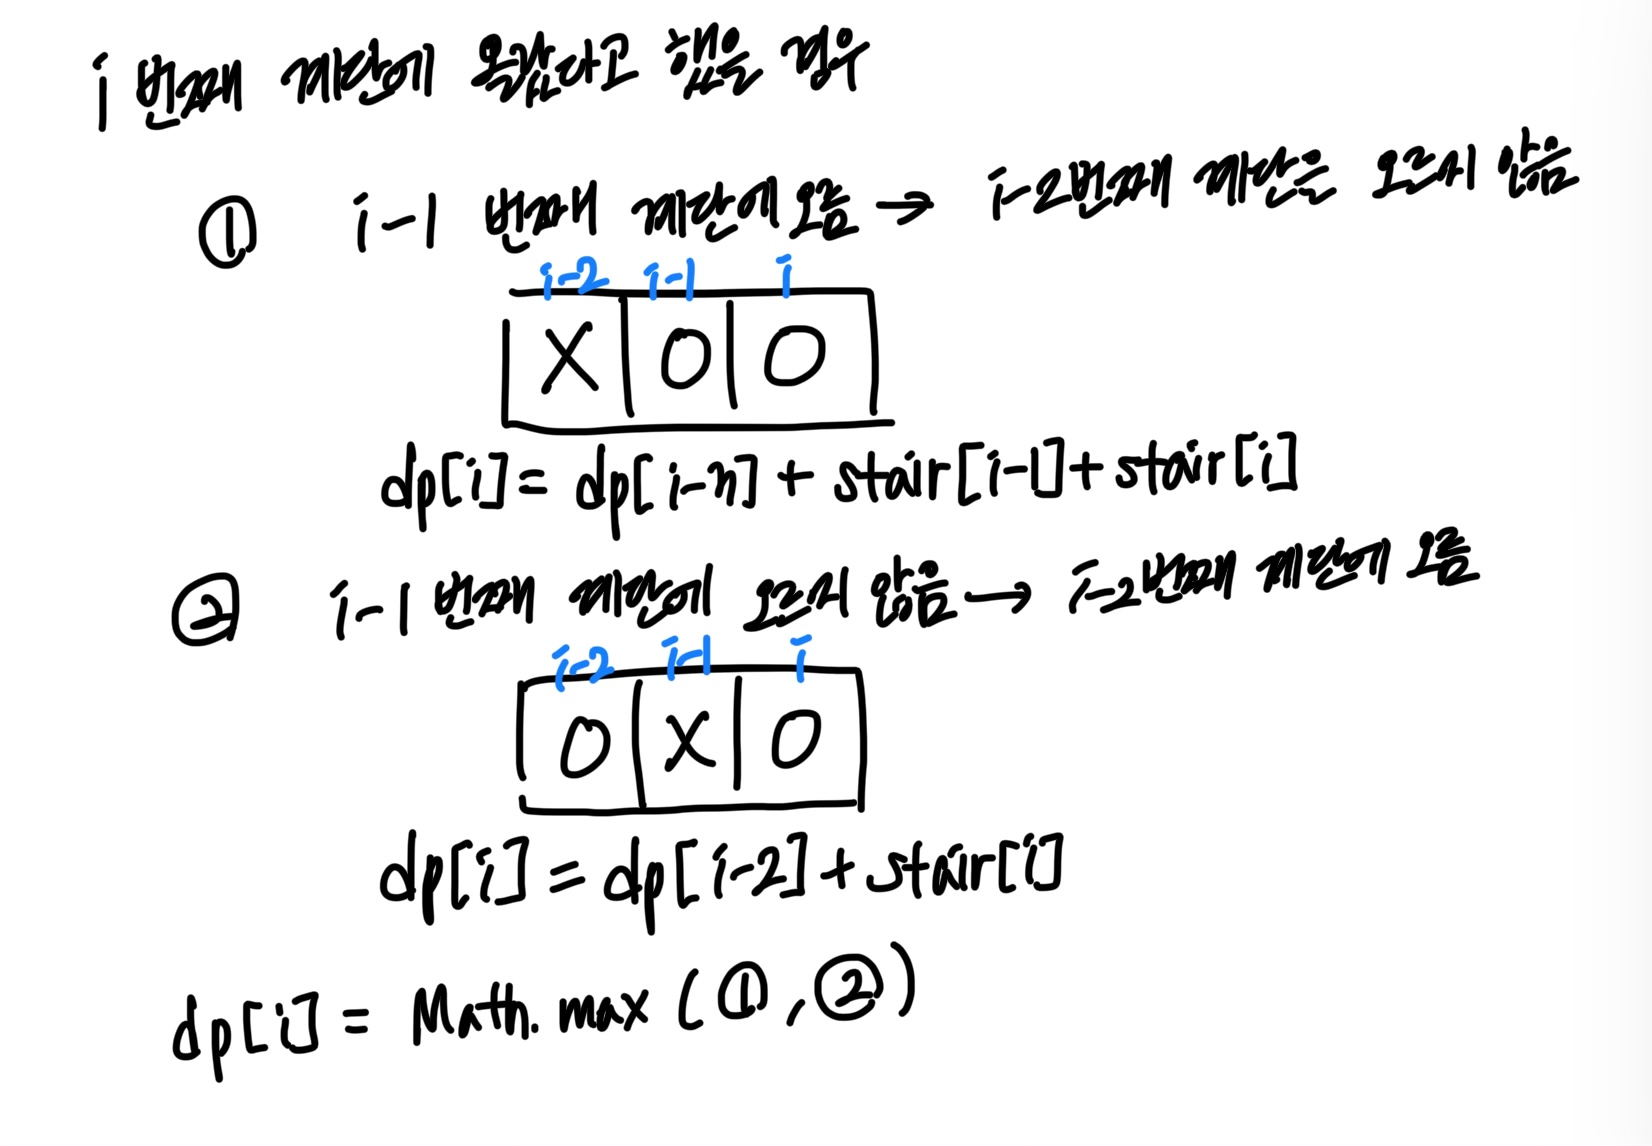 i 번째 계단에 올랐다고 했을 경우
① i-1 번째 계단에 오름 → i-2번째 계단을 오르지 않음
i-2 i-1 i
X O O
dp[i] = dp[i-n] + stair[i-1] + stair[i]
② i-1 번째 계단에 오르지 않음 → i-2번째 계단에 오름
i-2 i-1 i
O X O
dp[i] = dp[i-2] + stair[i]
dp[i] = Math.max (①, ②)